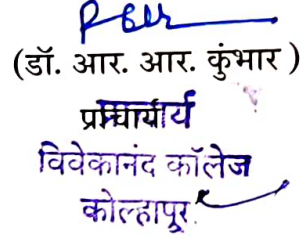 (डॉ. आर. आर. कुंभार )
प्राचार्य
प्राचार्य
विवेकानंद कॉलेज
कोल्हापूर